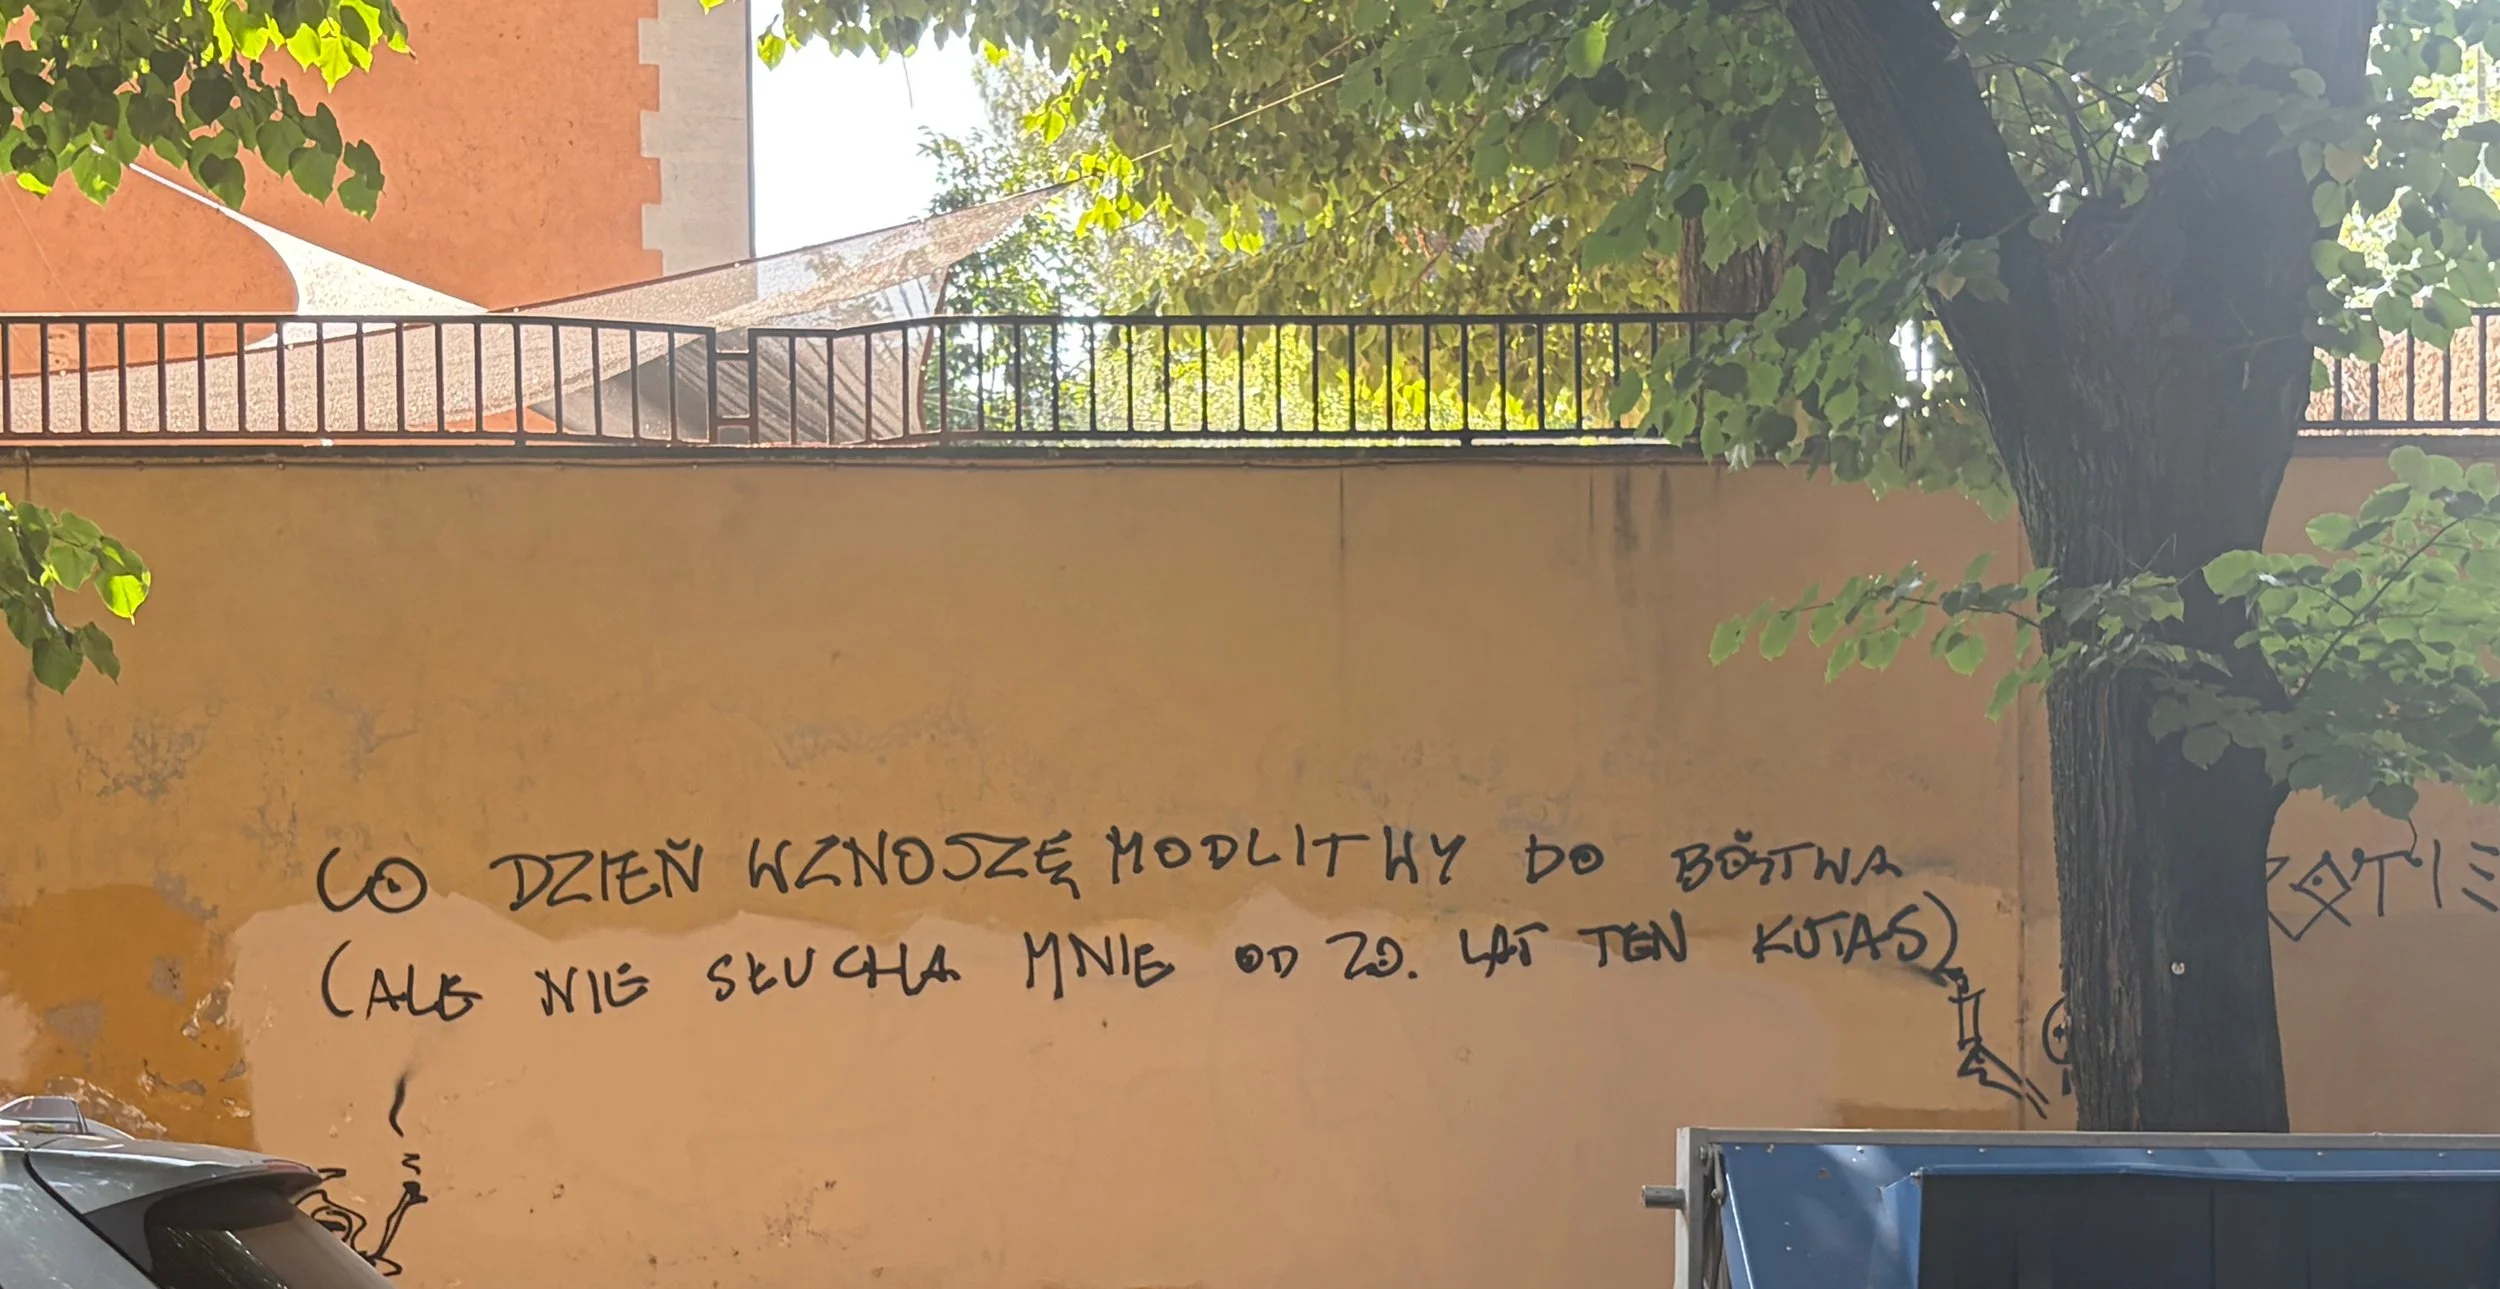 CO DZIEŃ WZNOSZĘ MODLITWY DO BÓSTWA
(ALE NIE SŁUCHA MNIE OD 20. LAT TEN KUTAS)